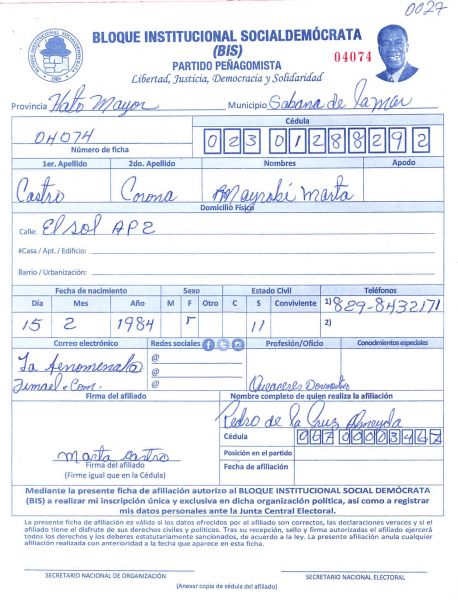 0027
BLOQUE INSTITUCIONAL SOCIALDEMÓCRATA
(BIS)
PARTIDO PEÑAGOMISTA
04074
Libertad, Justicia, Democracia y Solidaridad
Provincia Hato Mayor Municipio Sabana de la mar
Cédula
04074 023 0128829 2
Número de ficha
1er. Apellido 2do. Apellido Nombres Apodo
Castro Corona Mayrobi Marta
Domicilio Físico
Calle: El sol AP2
#Casa / Apt. / Edificio:
Barrio / Urbanización:
Fecha de nacimiento Sexo Estado Civil Teléfonos
Día Mes Año M F Otro C S Conviviente 1) 829-8432171
15 2 1984 11 2)
Correo electrónico Redes sociales Profesión/Oficio Conocimientos especiales
La fenomenala @
@
@
Firma del afiliado Nombre completo de quien realiza la afiliación
Pedro de la Cruz Almeyda
Cédula 067 000 3467
marta castro Posición en el partido
Firma del afiliado
(Firme igual que en la Cédula) Fecha de afiliación
Mediante la presente ficha de afiliación autorizo al BLOQUE INSTITUCIONAL SOCIAL DEMÓCRATA
(BIS) a realizar mi inscripción única y exclusiva en dicha organización política, así como a registrar
mis datos personales ante la Junta Central Electoral.
La presente ficha de afiliación es válida si los datos ofrecidos por el afiliado son correctos, las declaraciones veraces y si el
afiliado tiene el disfrute de sus derechos civiles y políticos. Tras su recepción, sello y firma autorizadas el afiliado ejercerá
todos los derechos y los deberes estatutariamente sancionados, de acuerdo a la ley. La presente afiliación anula cualquier
afiliación realizada con anterioridad a la fecha que aparece en esta ficha.
SECRETARIO NACIONAL DE ORGANIZACIÓN SECRETARIO NACIONAL ELECTORAL
(Anexar copia de cédula del afiliado)